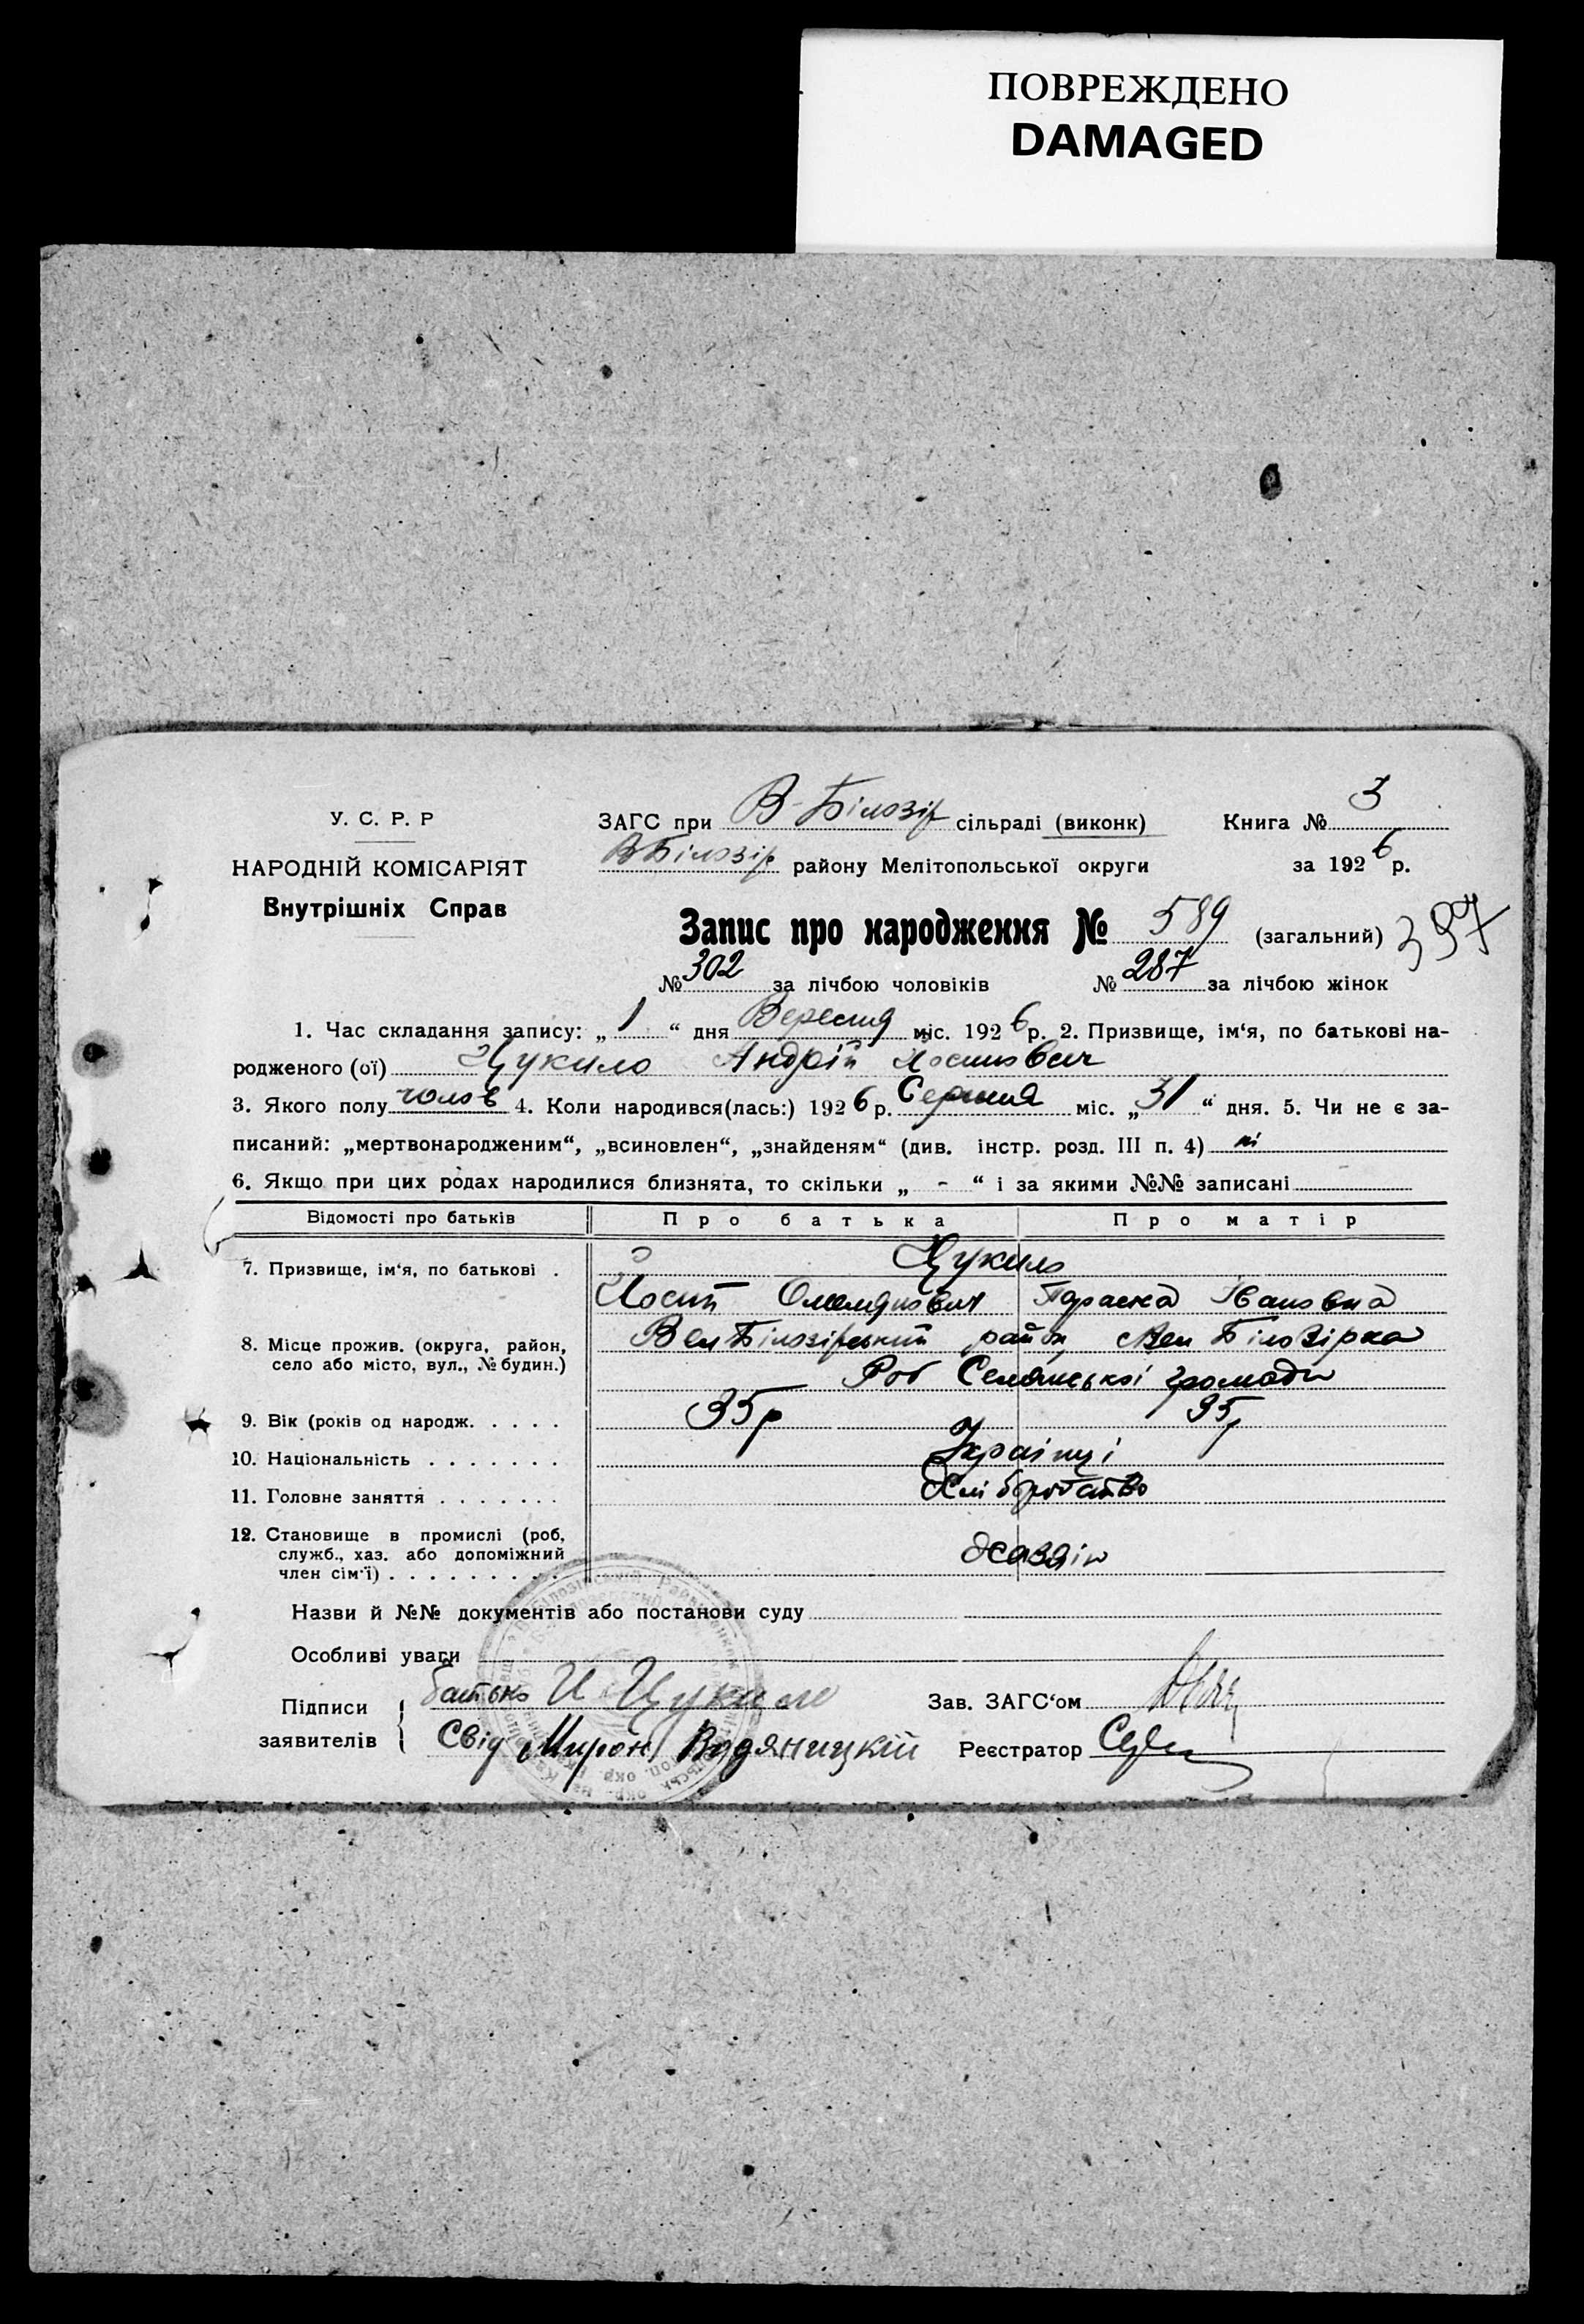 ПОВРЕЖДЕНО
DAMAGED
У. С. Р. Р
НАРОДНІЙ КОМІСАРІЯТ
Внутрішніх Справ
ЗАГС при В-Білозір сільраді (виконк) Книга № 3
ВБілозір району Мелітопольської округи за 1926 р.
Запис про народження № 589 (загальний) 397
№ 302 за лічбою чоловіків № 287 за лічбою жінок
1. Час складання запису: „ 1 “ дня Вересня міс. 1926 р. 2. Призвище, ім‘я, по батькові на-
родженого (ої) Цукило Андрій Йосипович
3. Якого полу чолов 4. Коли народився(лась:) 1926 р. Серпня міс. „ 31 “ дня. 5. Чи не є за-
писаний: „мертвонародженим“, „всиновлен“, „знайденям“ (див. інстр. розд. III п. 4) ні
6. Якщо при цих родах народилися близнята, то скільки „ - “ і за якими №№ записані
Відомості про батьків Про батька Про матір
7. Призвище, ім‘я, по батькові . Цукило
Йосип Омелянович Параска Івановна
8. Місце прожив. (округа, район, село або місто, вул., № будин.) Вел Білозірський район, Вел Білозірка
Селянської громади
9. Вік (років од народж. . . . . 35р 35р
10. Національність . . . . . . . Українці
11. Головне заняття . . . . . . . Хліборобство
12. Становище в промислі (роб, служб., хаз. або допоміжний член сім‘ї) . . . . . . . . . . хазяін
Назви й №№ документів або постанови суду
Особливі уваги
Підписи заявителів батько И Цукило Зав. ЗАГС‘ом
Свід Мирон Водяницкій Реєстратор